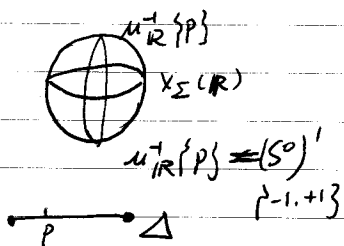 μ_ℝ^{-1}{p}
X_Σ(ℝ)
μ_ℝ^{-1}{p} = (S⁰)¹
{-1, +1}
p Δ